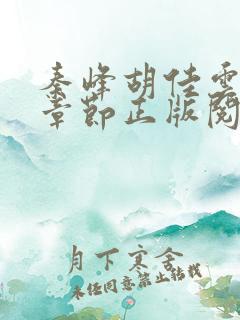 秦峰胡佳雲
章節正版閱
月下寒舍
未经同意禁止转载